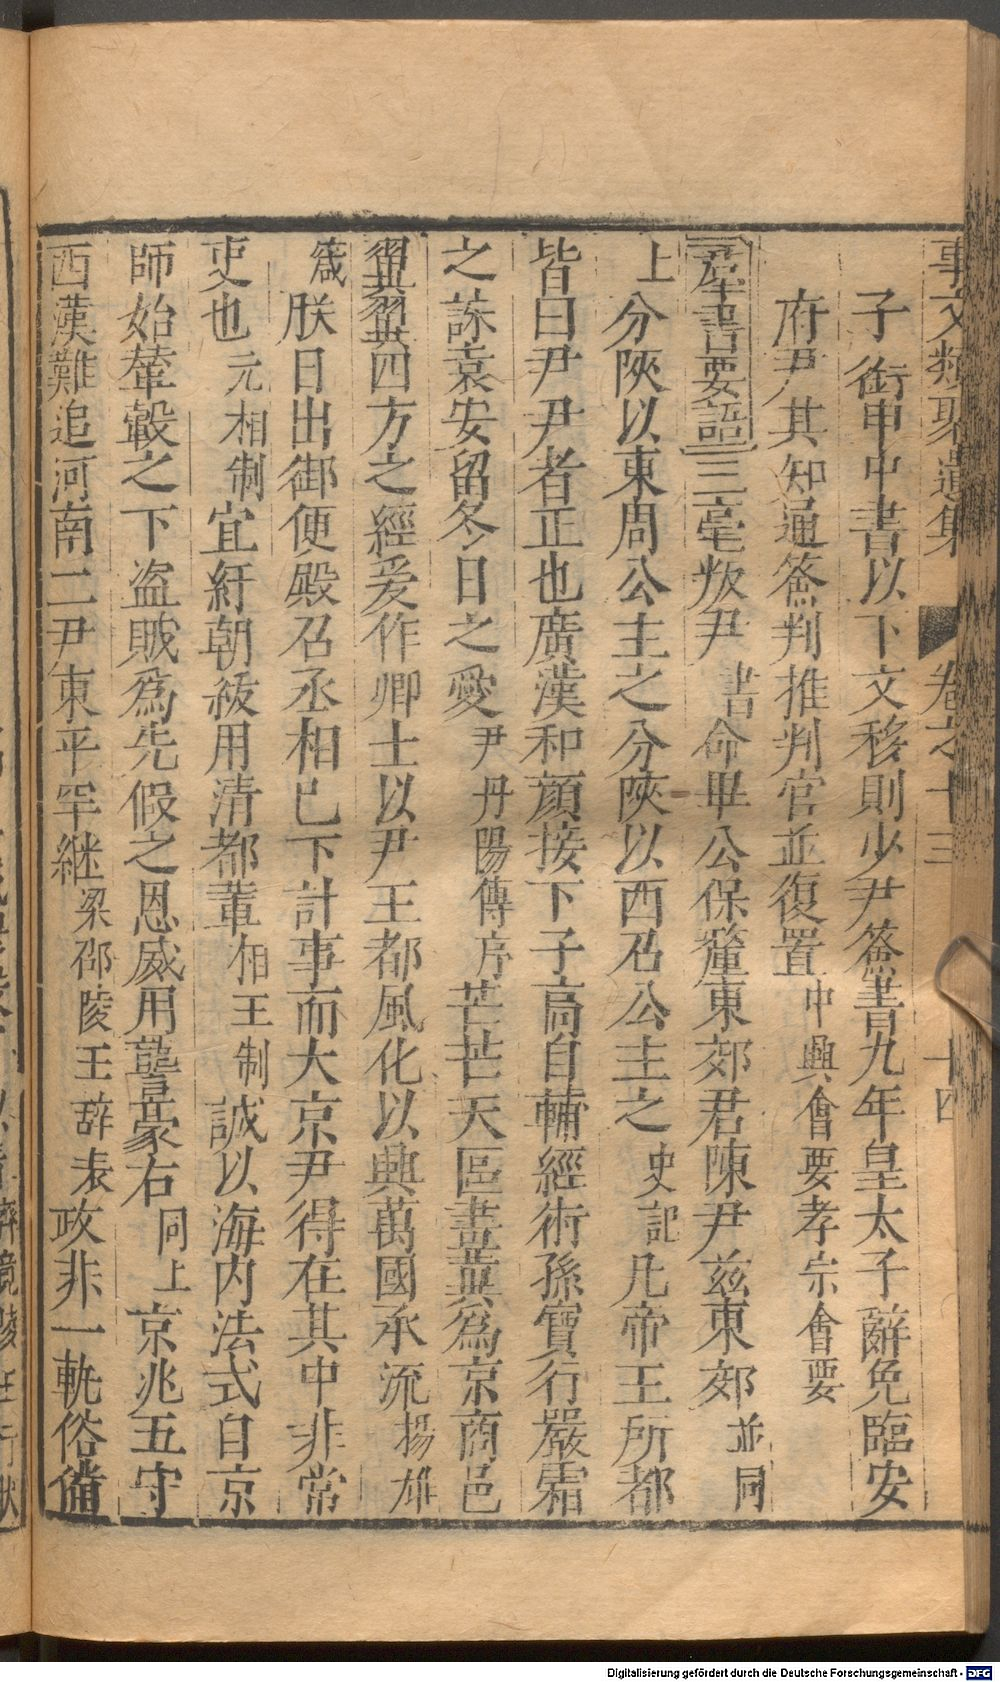 事文類聚遺集 卷之十三 十四
子銜申中書以下文移則少尹簽書九年皇太子辭免臨安
府尹其知通簽判推判官並復置中興會要孝宗會要
羣書要語三亳叛尹書命畢公保釐東郊君陳尹茲東郊並同
上分陜以東周公主之分陜以西召公主之史記凡帝王所都
皆曰尹尹者正也廣漢和顔接下子高自輔經術孫寶行嚴霜
之誅袁安留冬日之愛尹丹陽傳序芒芒天區畫冀爲京商邑
翼翼四方之經爰作卿士以尹王都風化以興萬國承流揚雄
箴朕日出御便殿召丞相已下計事而大京尹得在其中非常
吏也元相制宜紆朝紱用清都輦相王制誠以海内法式自京
師始輦轂之下盗賊爲先假之恩威用讋豪右同上京兆五守
西漢難追河南二尹東平罕継梁邵陵王辞表政非一軌俗備
Digitalisierung gefördert durch die Deutsche Forschungsgemeinschaft - DFG